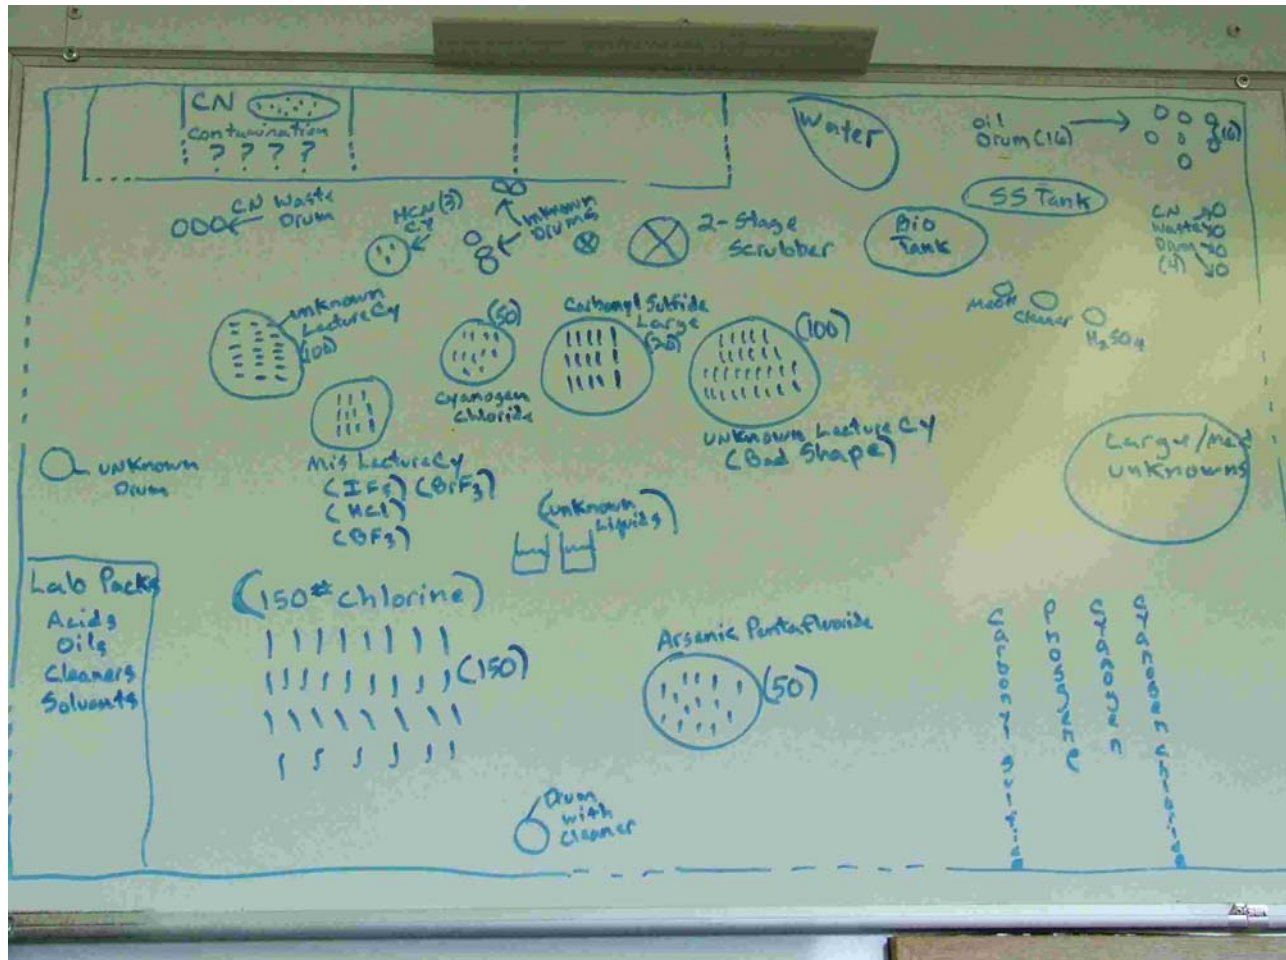 CN
contamination
? ? ? ?
Water
oil
Drum (16)
(16)
SS Tank
CN Waste
Drum
HCN (3)
CY
Unknown
Drums
2-Stage
Scrubber
Bio
Tank
CN
Waste
Drum
(4)
MeOH
Cleaner
H2SO4
unknown
Lecture Cy
(100)
(50)
Cyanogen
Chloride
Carbonyl Sulfide
Large
(20)
(100)
unknown Lecture Cy
(Bad Shape)
Mis Lecture Cy
(IF5) (BrF3)
(HCl)
(BF3)
unknown
Drum
(unknown
Liquids)
Large/Med
unknowns
Lab Packs
Acids
Oils
Cleaners
Solvents
(150# Chlorine)
(150)
Arsenic Pentafluoride
(50)
Drum
with
Cleaner
Carbonyl Sulfide
Phosgene
Cyanogen
Cyanogen Chloride